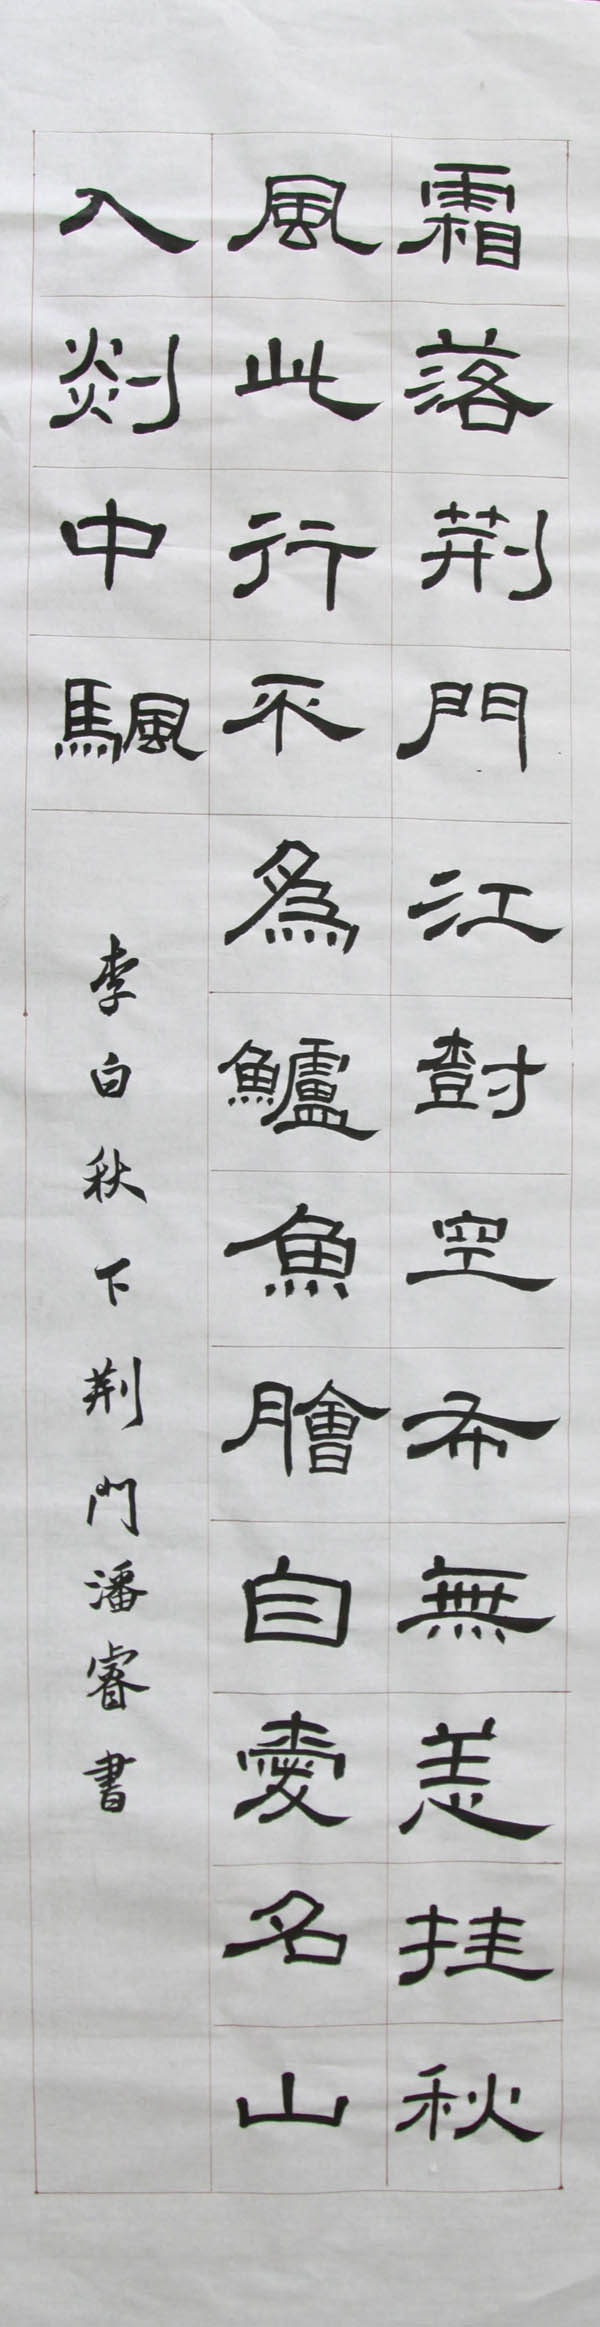 霜落荆門江尌空布無恙挂秋
風此行不為鱸魚膾自愛名山
入剡中颿
李白秋下荆門潘睿書